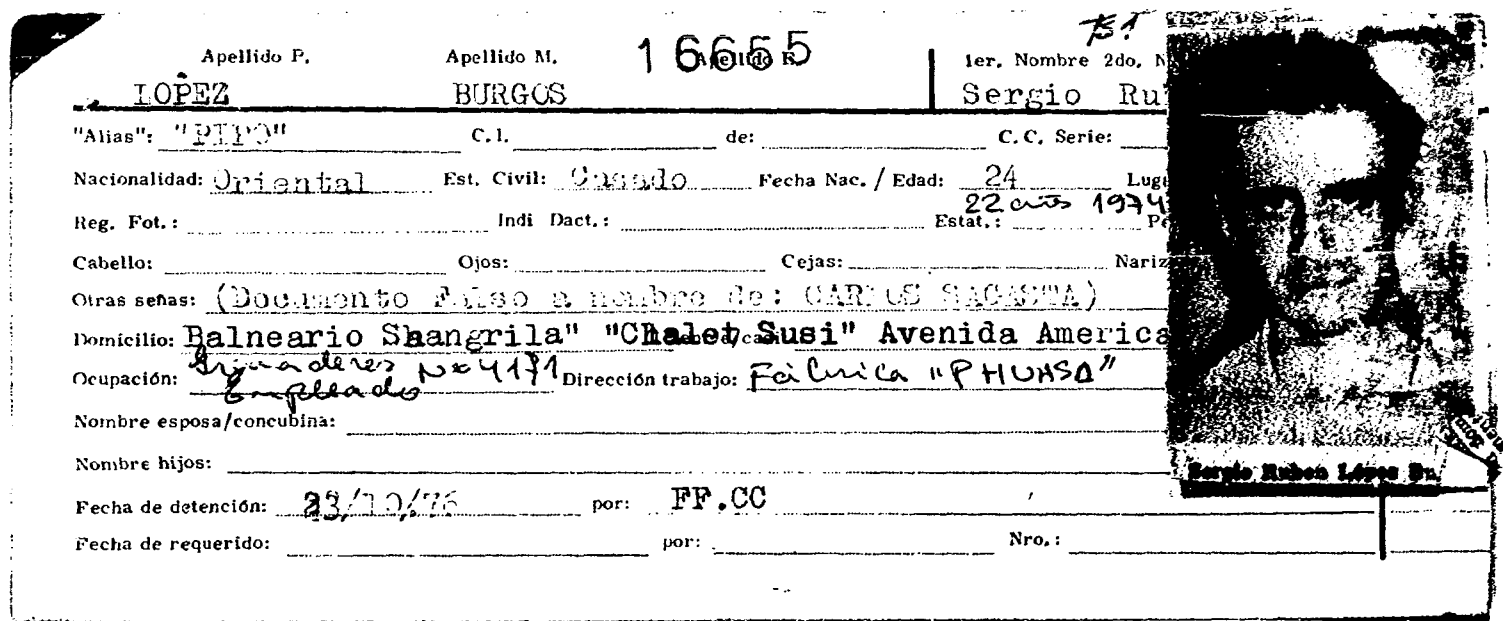 16655
Apellido P. Apellido M. 1er. Nombre 2do. N
LOPEZ BURGOS Sergio Ru
"Alias": "PIPO" C.I. de: C.C. Serie:
Nacionalidad: Oriental Est. Civil: Casado Fecha Nac. / Edad: 24 Luga
22 años 1974
Reg. Fot.: Indi Dact.: Estat.: Pe
Cabello: Ojos: Cejas: Nariz
Otras señas: (Documento Falso a nombre de: CARLOS SAGASTA)
Domicilio: Balneario Shangrila" "Chalet Susi" Avenida America
No 4171
Ocupación: Empleado Dirección trabajo: Fábrica "PHUASA"
Nombre esposa/concubina:
Nombre hijos:
Sergio Ruben López Bu
Fecha de detención: 23/10/76 por: FF.CC
Fecha de requerido: por: Nro.: